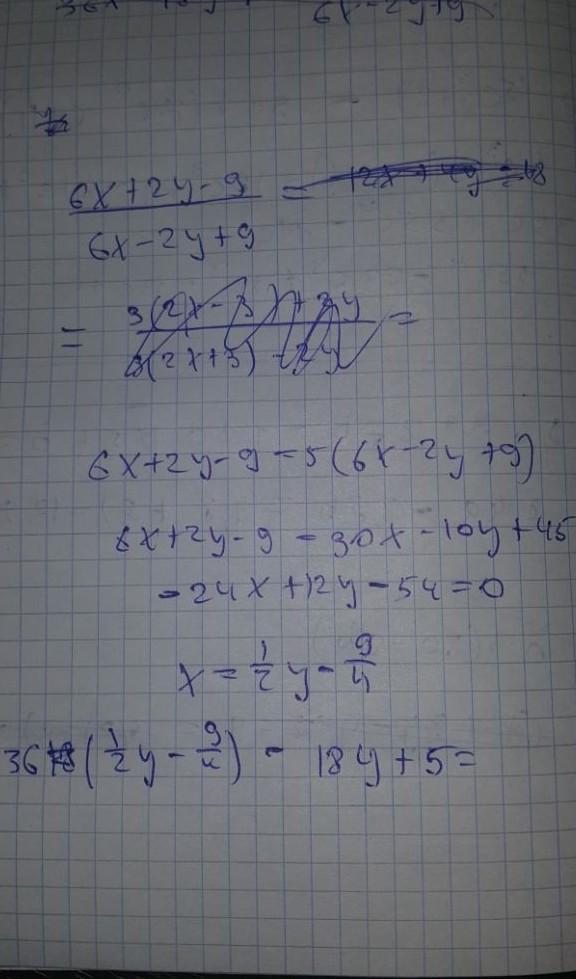 6x-2y+9
6x+2y-9 =
6x-2y+9
= 3(2x-3)+2y =
3(2x+3)-2y
6x+2y-9=5(6x-2y+9)
6x+2y-9=30x-10y+45
-24x+12y-54=0
x=1/2y-9/4
36(1/2y-9/4)-18y+5=